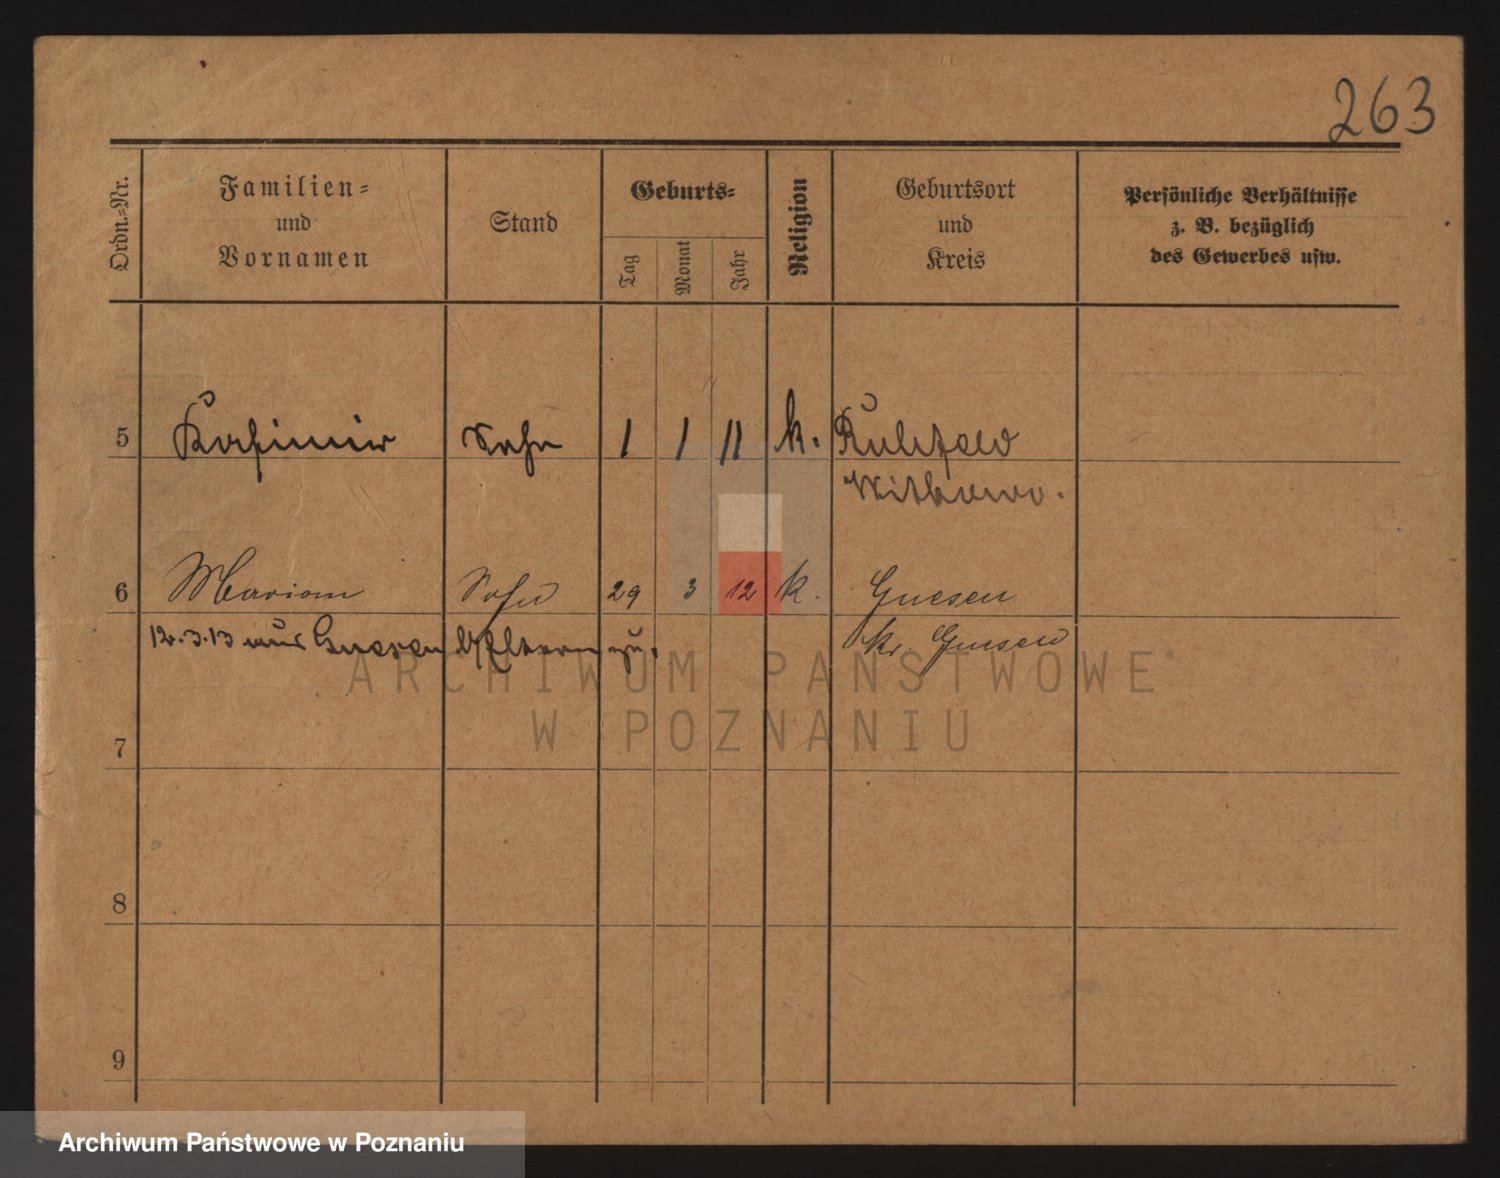 263
Ordn.-Nr.
Familien-
und
Vornamen
Stand
Geburts-
Tag
Monat
Jahr
Religion
Geburtsort
und
Kreis
Persönliche Verhältnisse
z. B. bezüglich
des Gewerbes usw.
5 Kasimir Sohn 1 1 11 k. Ruhfeld
Witkowo.
6 Mariom Sohn 29 3 12 k. Gnesen
12.3.13 aus Gnesen zu. kr. Gnesen
7
8
9
ARCHIWUM PAŃSTWOWE
W POZNANIU
Archiwum Państwowe w Poznaniu